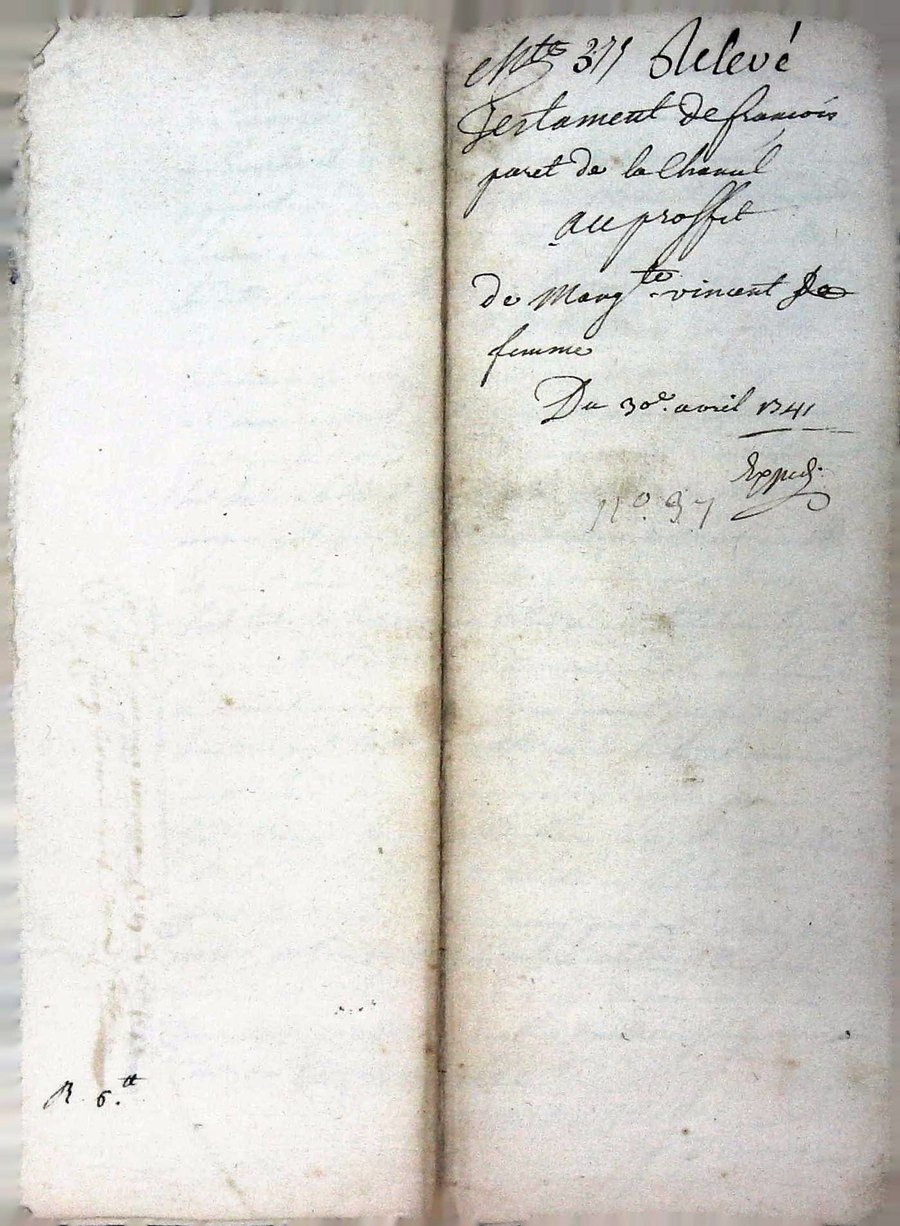 Relevé
Testament de francois
paret de la Chanal
au proffit
de Marg.te vincent Sa
femme
Du 30e. avril 1741
Exped.
no. 37
R 6.tt